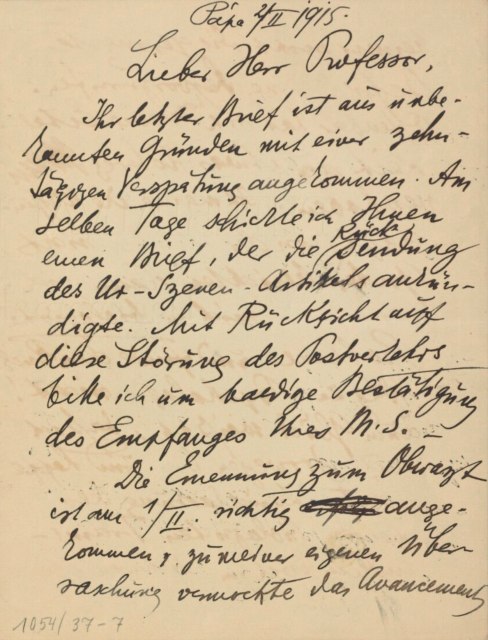 Pápa 2/II 1915.
Lieber Herr Professor,
Ihr letzter Brief ist aus unbe-
kannten Gründen mit einer zehn-
tägigen Verspätung angekommen. Am
selben Tage schickte ich Ihnen
einen Brief, der die Rück
Sendung
des Ur-Szenen-Artikels ankün-
digte. Mit Rücksicht auf
diese Störung des Postverkehrs
bitte ich um baldige Bestätigung
des Empfanges Ihres M.S. –
Die Ernennung zum Oberarzt
ist am 1/II. richtig ange-
kommen, zu meiner eigenen Über-
raschung vermochte das Avancement
1054/37-7